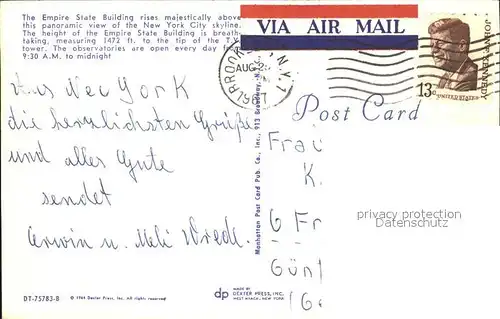 The Empire State Building rises majestically above
this panoramic view of the New York City skyline.
The height of the Empire State Building is breath-
taking, measuring 1472 ft. to the tip of the T.V.
tower. The observatories are open every day from
9:30 A.M. to midnight
VIA AIR MAIL
N.Y.
AUG 2
JOHN F. KENNEDY
13c
UNITED STATES
Post Card
Aus New York
die herzlichsten Grüße
und alles Gute
sendet
Erwin u. Meli Wredl.
Frau
K.
6 Fr
Gün
(Ge
privacy protection
VDMedien24.de
Manhattan Post Card Pub. Co., Inc., 913 Broadway, N.
DT-75783-B
© 1965 Dexter Press, Inc. All rights reserved
dp
MADE BY
DEXTER PRESS, INC.
WEST NYACK, NEW YORK